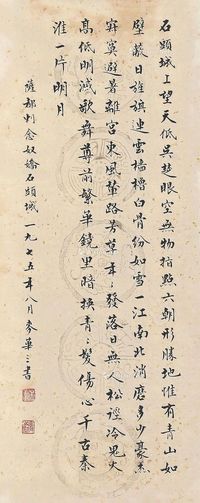 石頭城上望天低吳楚眼空無物指點六朝形勝地惟有青山如
壁蔽日旌旗連雲檣櫓白骨紛如雪一江南北消磨多少豪杰
寂寞避暑離宮東風輦路芳草年々發落日無人松徑冷鬼火
高低明滅歌舞尊前繁華鏡裡暗換青々髮傷心千古秦
淮一片明月
薩都剌念奴嬌石頭城 一九七五年八月 麥華三書